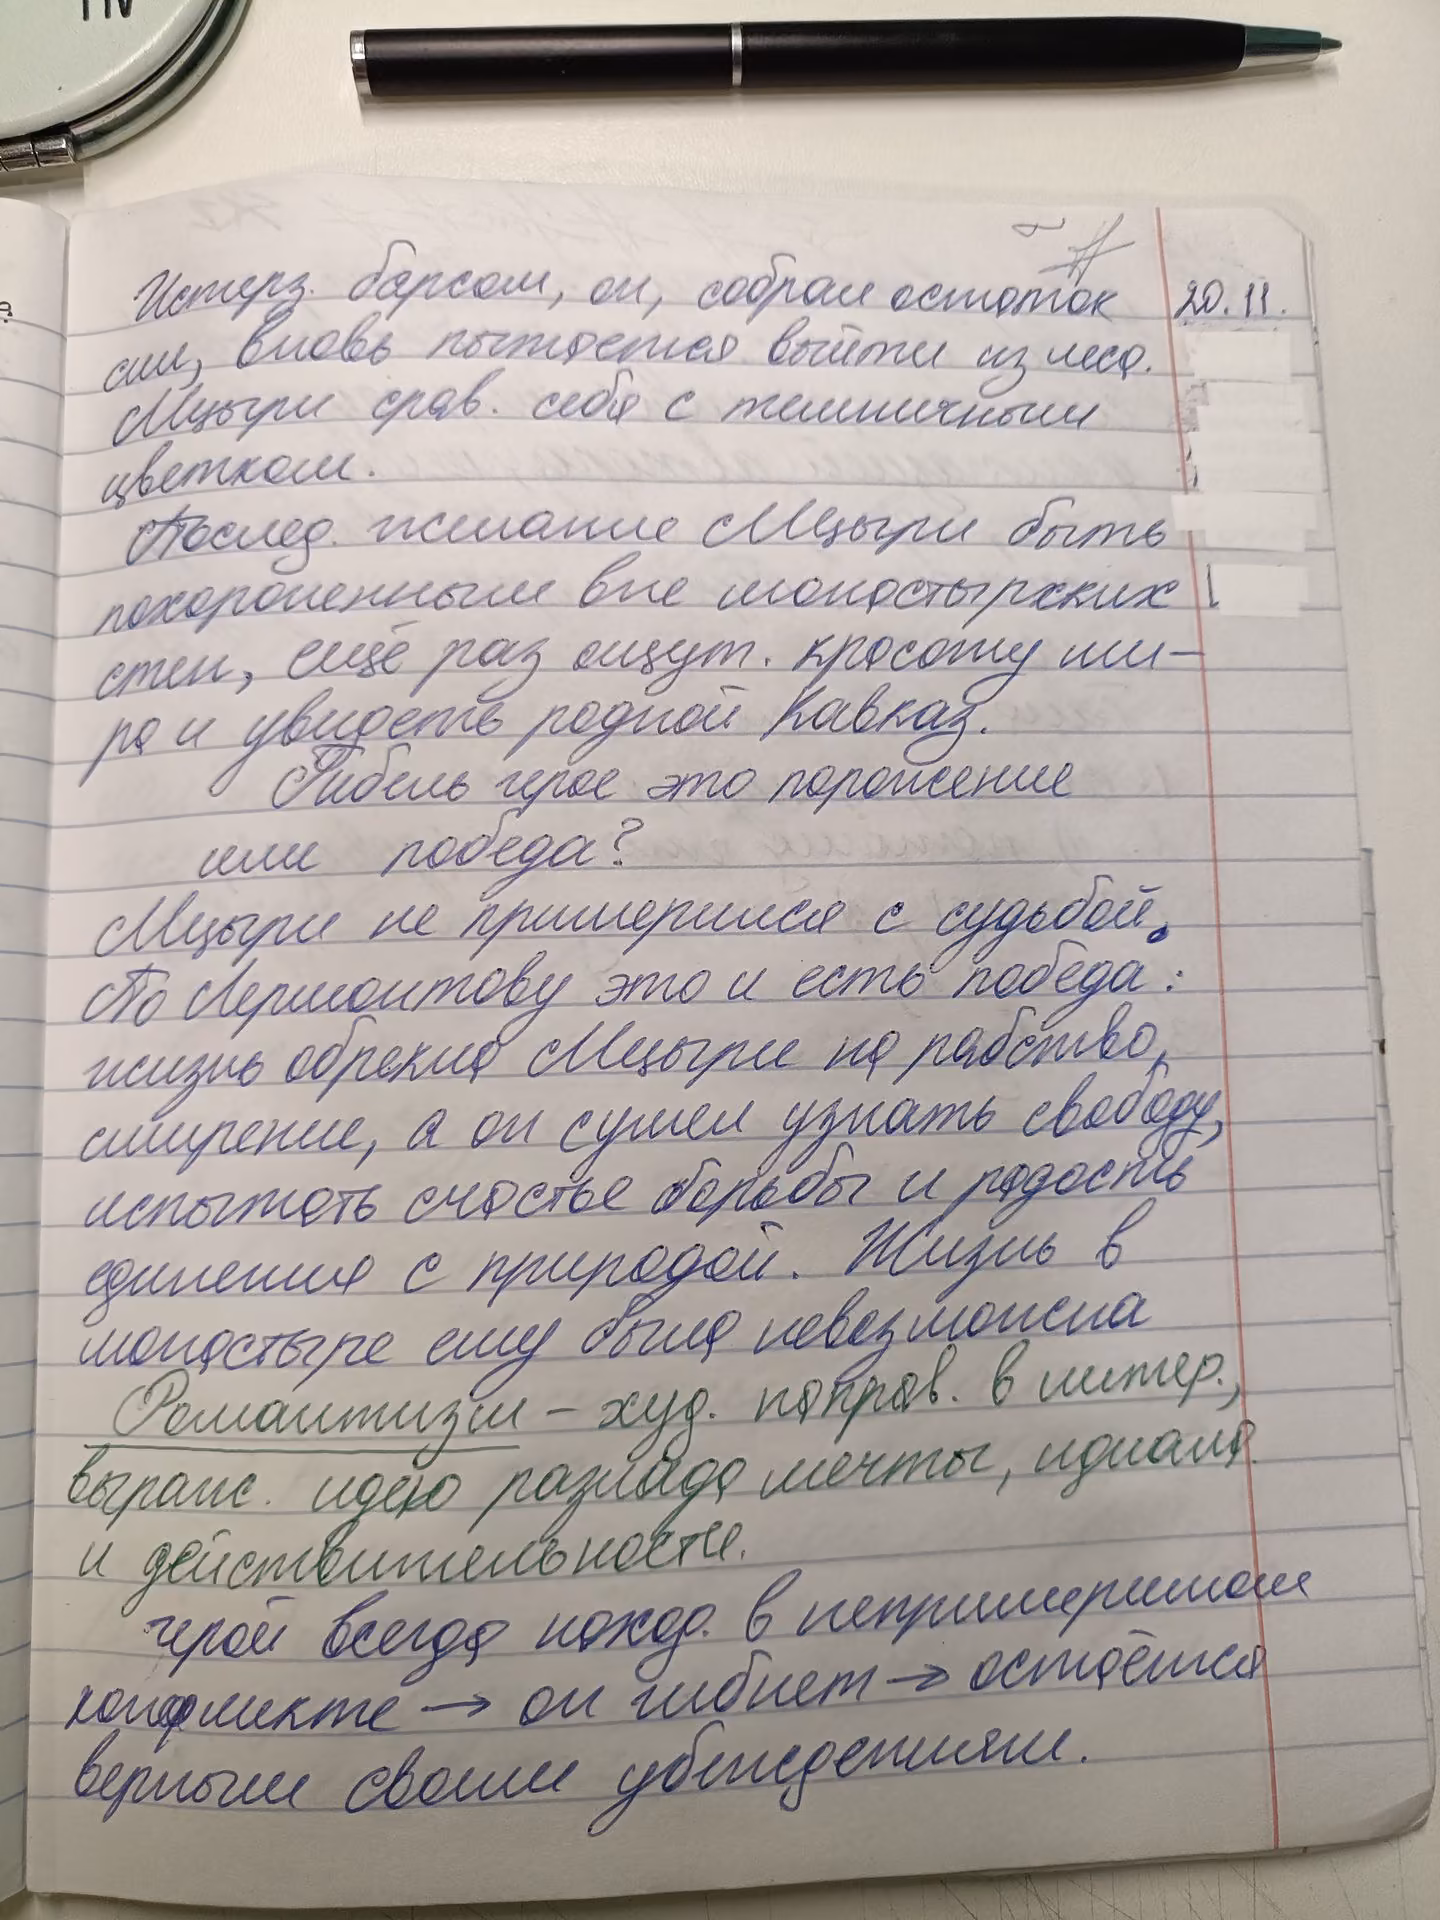 20.11.
Истерз. барсом, он, собрал остаток
сил, вновь пытается выйти из леса.
Мцыри срав. себя с темничным
цветком.
Послед. желание Мцыри быть
похороненным вне монастырских
стен, ещё раз ощут. красоту ми-
ра и увидеть родной Кавказ.
Гибель героя это поражение
или победа?
Мцыри не примерился с судьбой.
По Лермонтову это и есть победа:
жизнь обрекла Мцыри на рабство,
смирение, а он сумел узнать свободу,
испытать счастье борьбы и радость
единения с природой. Жизнь в
монастыре ему была невозможна
Романтизм – худ. направ. в литер.,
выраж. идею разлада мечты, идиала
и действительности.
герой всегда наход. в непримеримом
конфликте → он гибнет → остаётся
верным своим убеждениям.